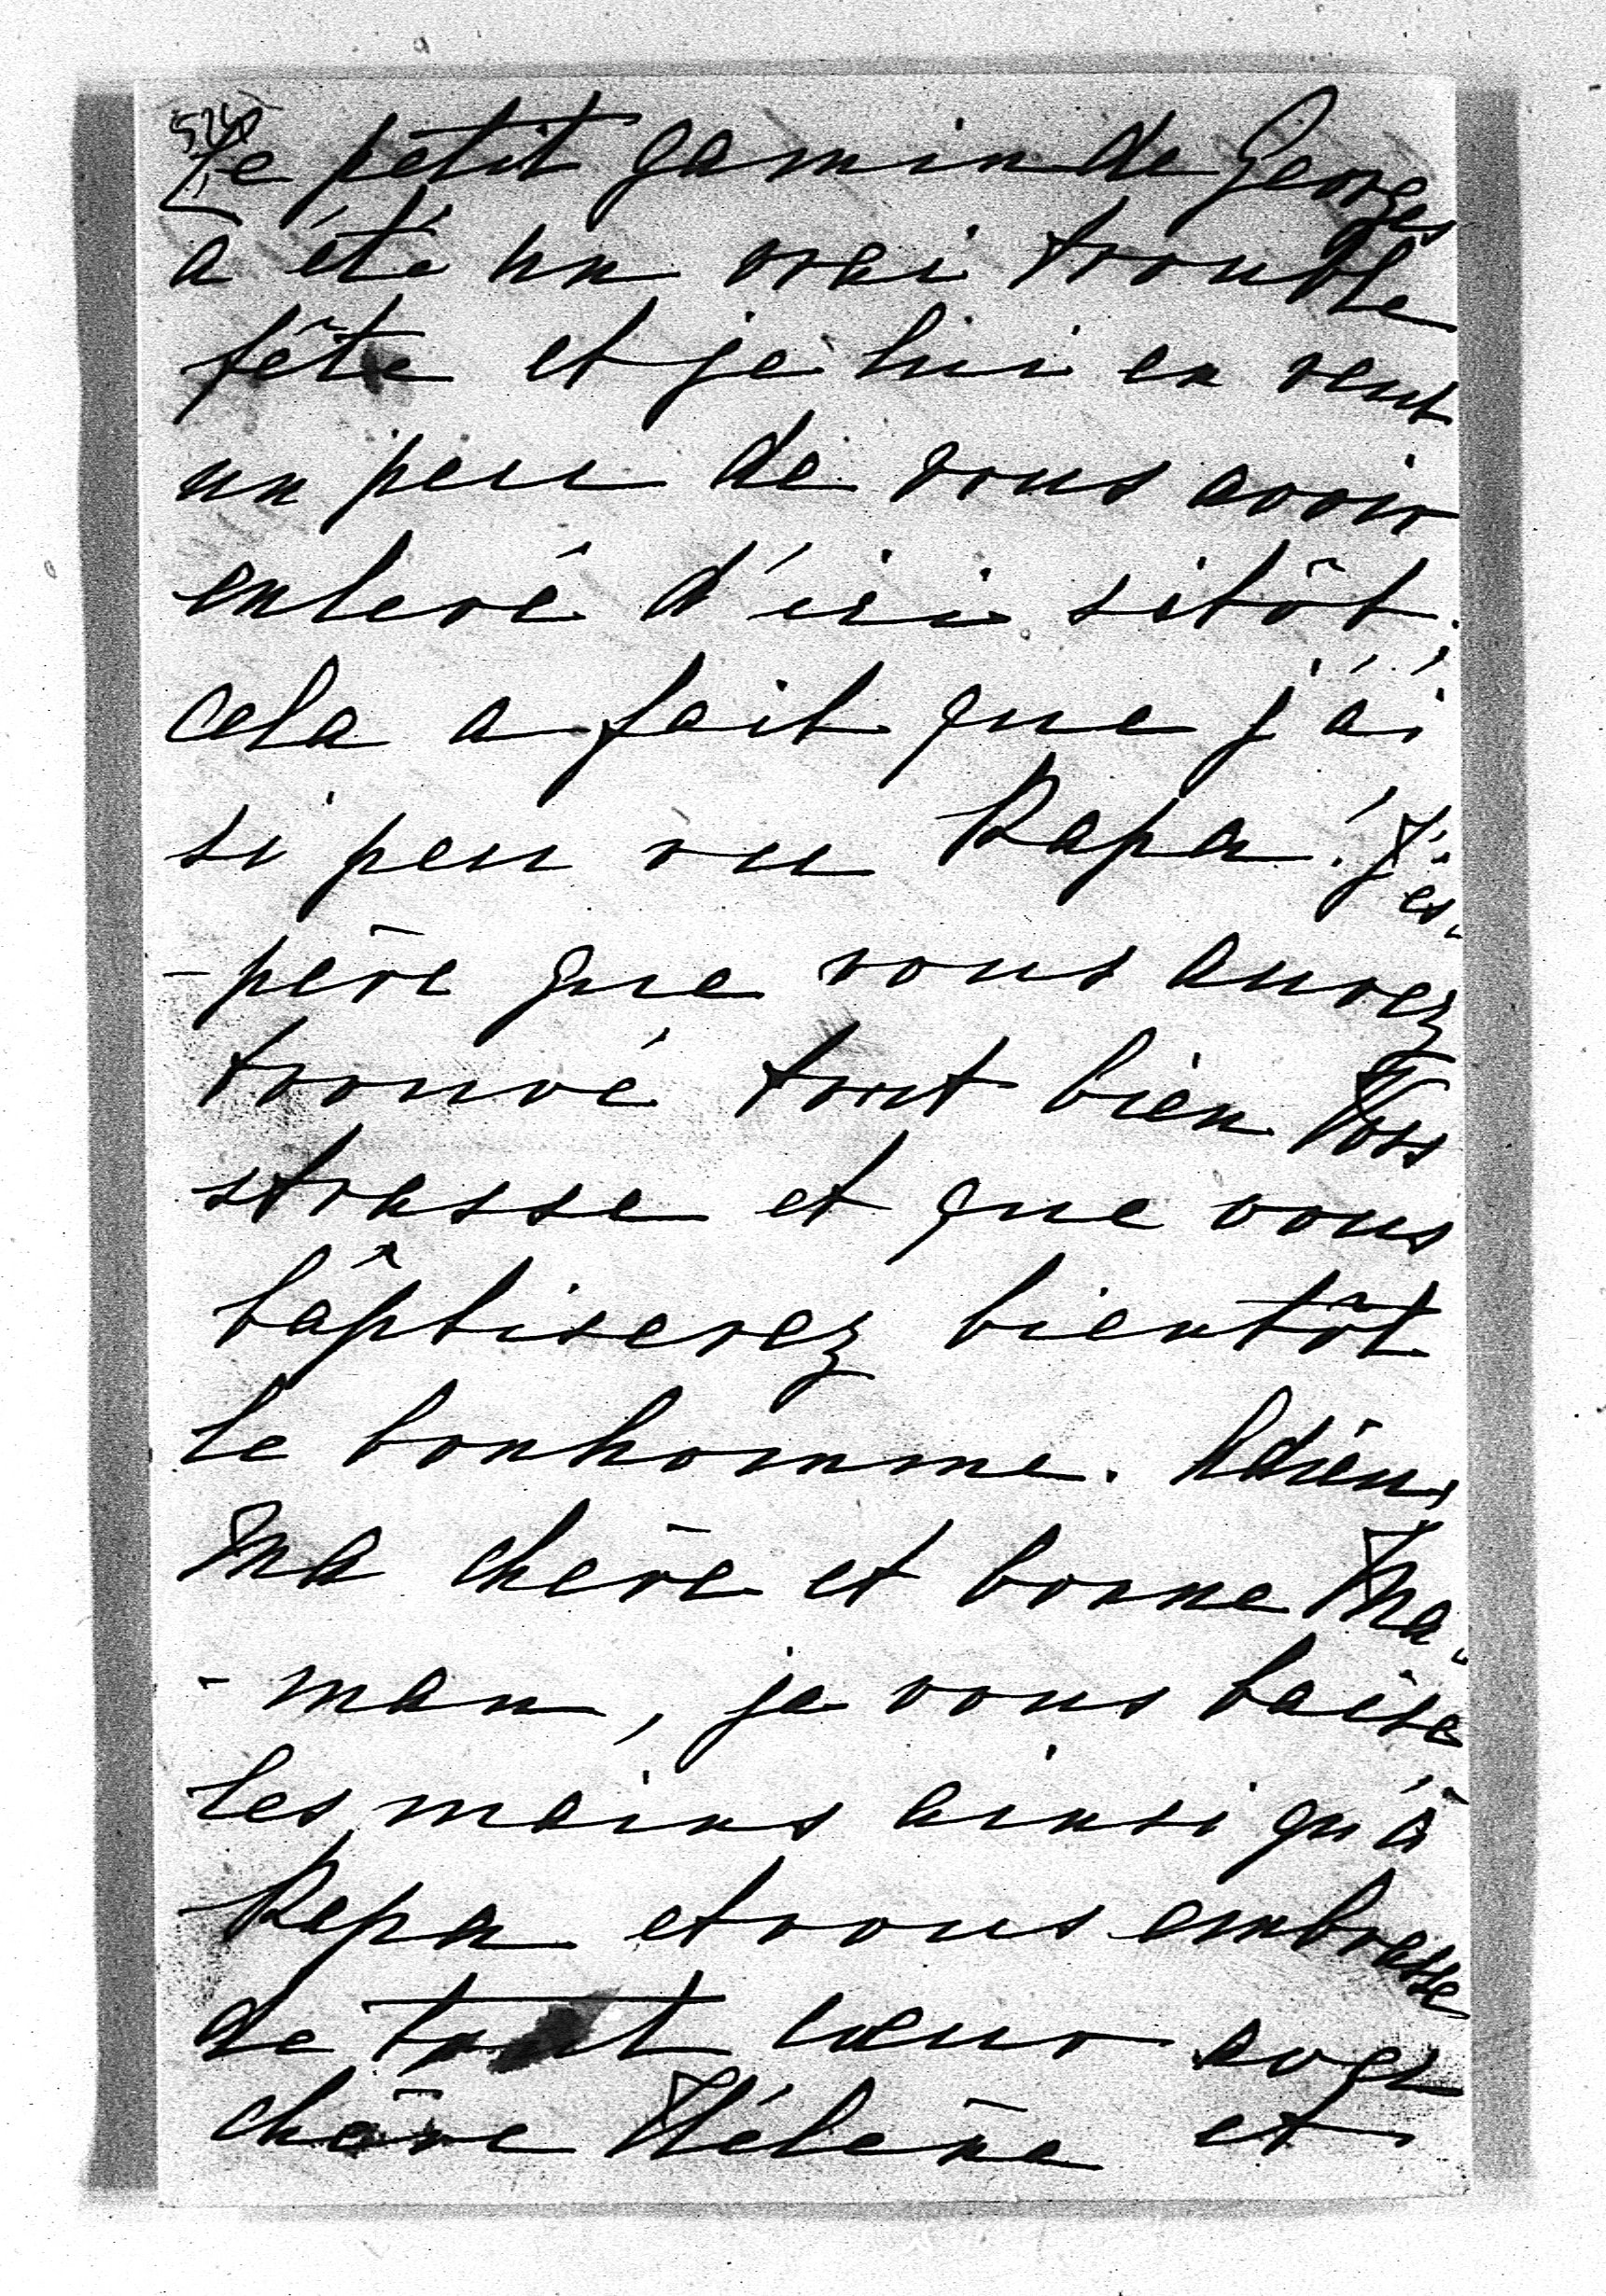 Le petit gamin de Georges
a été un vrai trouble
fête et je lui en veut
un peu de vous avoir
enlevé d'ici sitôt.
cela a fait que j'ai
si peu vu Papa! J'es-
-père que vous aurez
trouvé tout bien Voss
strasse et que vous
bâptiserez bientôt
le bonhomme. Adieu,
Ma chère et bonne Ma-
-man, je vous baise
les mains ainsi qu'à
Papa et vous embrasse
de tout cœur avec
chère Hélène et